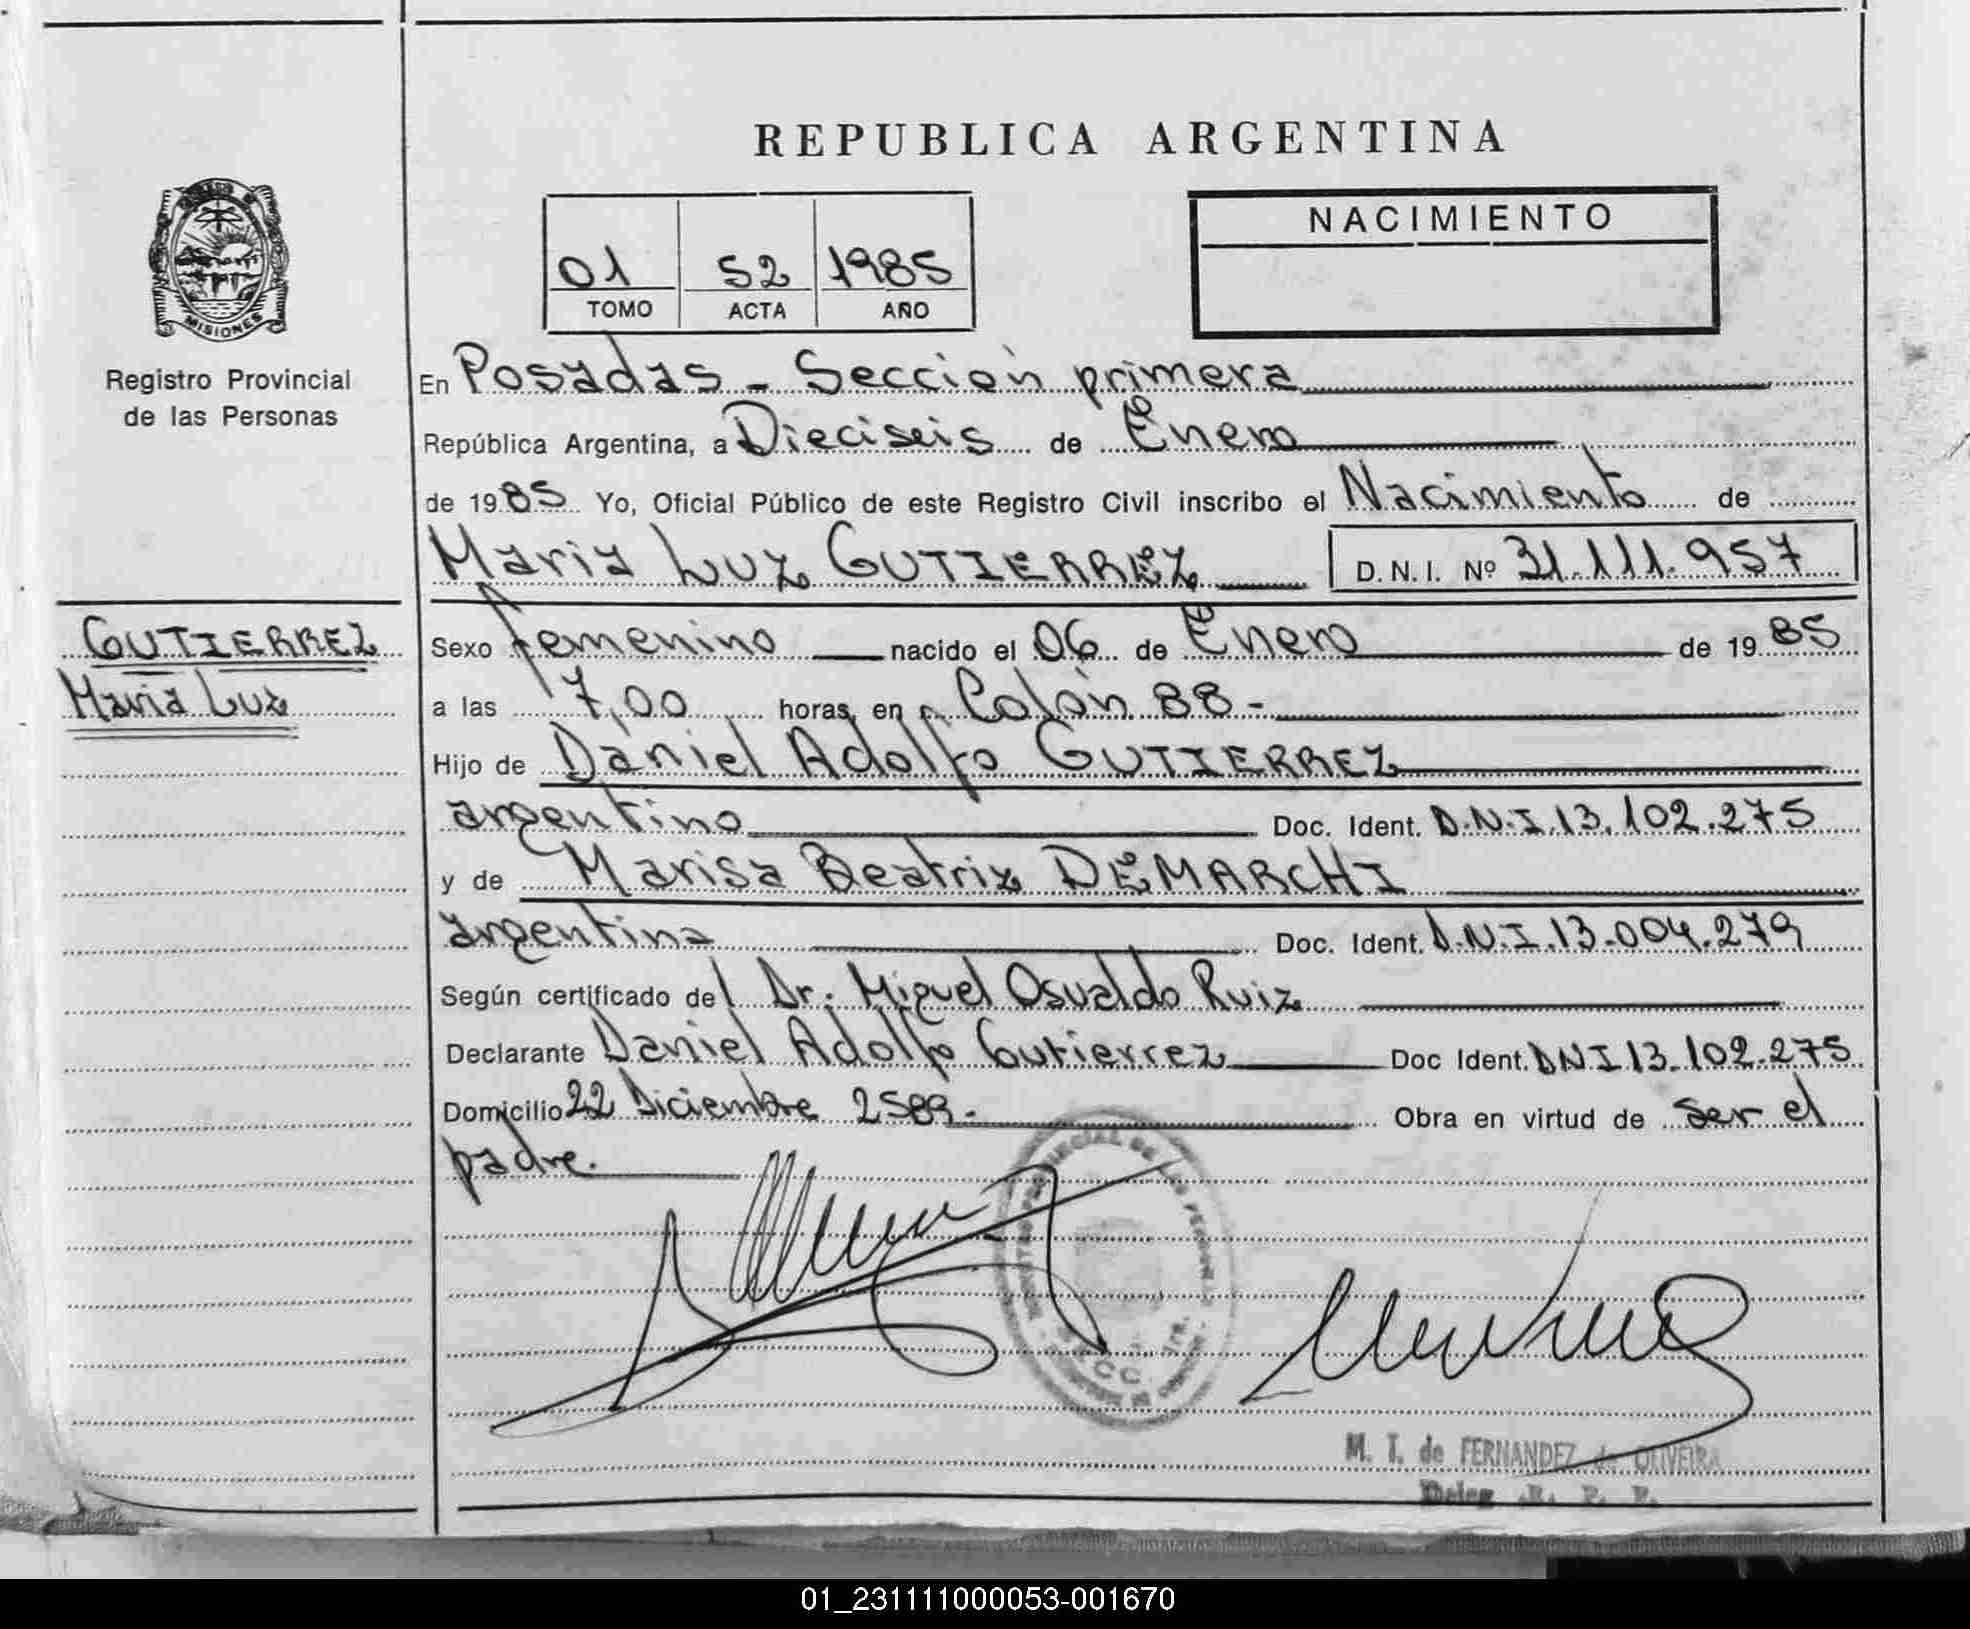 REPUBLICA ARGENTINA
NACIMIENTO
01 52 1985
TOMO ACTA AÑO
MISIONES
Registro Provincial
de las Personas
En Posadas - Sección primera
República Argentina, a Dieciseis de Enero
de 1985 Yo, Oficial Público de este Registro Civil inscribo el Nacimiento de
Maria Luz GUTIERREZ D.N.I. Nº 31.111.957
GUTIERREZ
Maria Luz
Sexo femenino nacido el 06 de Enero de 1985
a las 17,00 horas, en Colón 88-
Hijo de Daniel Adolfo GUTIERREZ
argentino Doc. Ident. D.N.I.13.102.275
y de Marisa Beatriz DEMARCHI
argentina Doc. Ident. D.N.I.13.004.279
Según certificado del Dr. Miguel Osvaldo Ruiz
Declarante Daniel Adolfo Gutierrez Doc Ident. DNI 13.102.275
Domicilio 22 Diciembre 2589.- Obra en virtud de ser el
padre.
SECC. 1ra.
M. I. de FERNANDEZ de OLIVEIRA
Deleg. R. P. P.
01_231111000053-001670